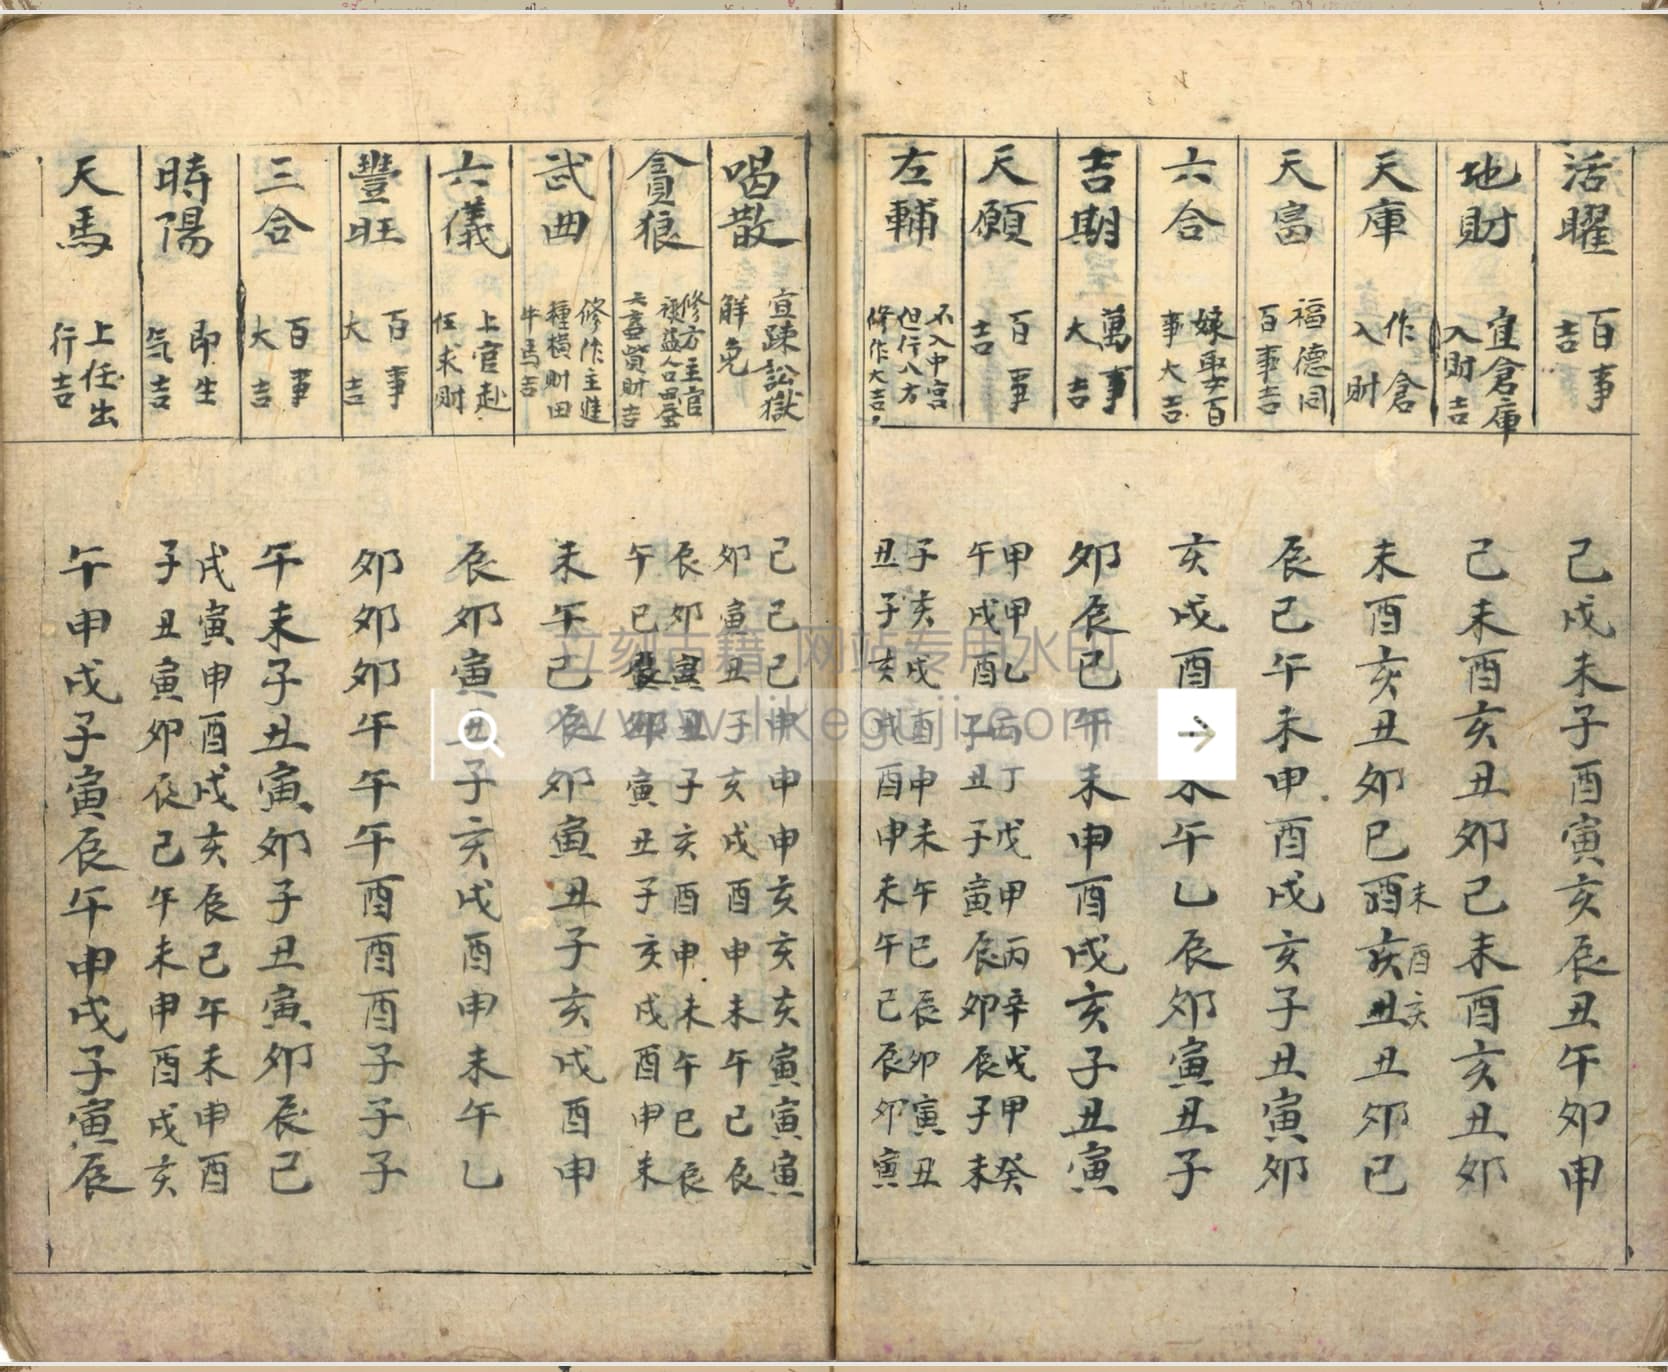 活曜
百事
吉
巳戌未子酉寅亥辰丑午卯申
地財
宜倉庫
入財吉
巳未酉亥丑卯巳未酉亥丑卯
天庫
作倉
入財
未酉亥丑卯巳酉亥丑丑卯巳
未酉亥
天富
福德同
百事吉
辰巳午未申酉戌亥子丑寅卯
六合
嫁娶百
事大吉
亥戌酉未午乙辰卯寅丑子
吉期
萬事
大吉
卯辰巳午未申酉戌亥子丑寅
天願
百事
吉
甲甲乙丙丁戊甲丙辛戊甲癸
午戌酉子丑子寅辰卯辰子未
左輔
不入中宮
但行八方
修作大吉
子亥戌酉申未午巳辰卯寅丑
丑子亥戌酉申未午巳辰卯寅
喝散
宜疎訟獄
解免
巳巳巳申申申亥亥亥寅寅寅
卯寅丑子亥戌酉申未午巳辰
貪狼
修方主官
祿益人口田
貲財吉
辰卯寅丑子亥酉申未午巳辰
午巳辰卯寅丑子亥戌酉申未
武曲
修作主進
種橫財田
牛馬吉
未午巳辰卯寅丑子亥戌酉申
六儀
上官赴
任求財
辰卯寅丑子亥戌酉申未午乙
豐旺
百事
大吉
卯卯卯午午午酉酉酉子子子
三合
百事
大吉
午未子丑寅卯子丑寅卯辰巳
時陽
即生
气吉
戌寅申酉戌亥辰巳午未申酉
子丑寅卯辰巳午未申酉戌亥
天馬
上任出
行吉
午申戌子寅辰午申戌子寅辰
立刻古籍 网站专用水印
www.likeguji.com